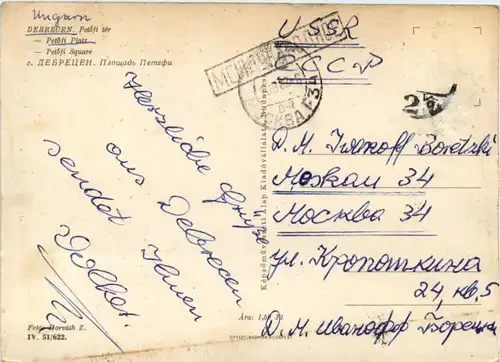 Ungarn
DEBRECEN. Petőfi tér
— Petőfi Platz
— Petőfi Square
г. ДЕБРЕЦЕН. Площадь Петефи
USSR
СССР
МОСКВА Г-34
2
Herzliche Grüße
aus Debrecen
sendet Ihnen
D. M. Iwanoff Boretzki
Moskau 34
Москва 34
ул. Кропоткина
24, кв. 5
Д. М. Иванофф Борецки
Képzőművészeti Alap Kiadóvállalata, Budapest
Foto: Horváth Z.
IV. 51/622.
Ára: 1,50 Ft